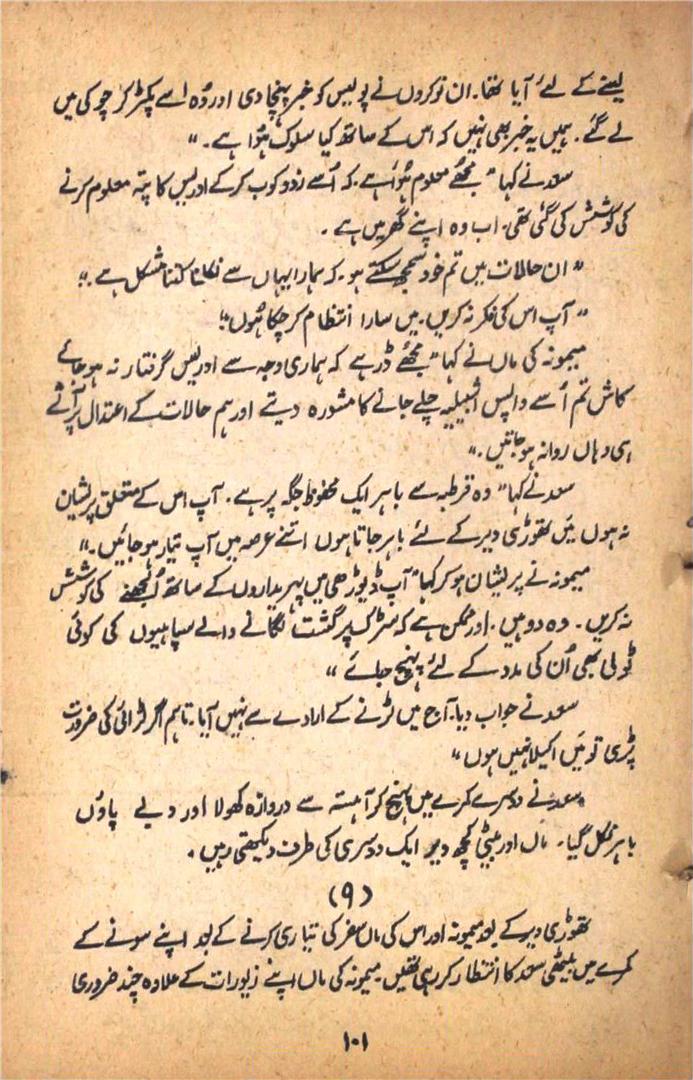 لینے کے لئے آیا تھا۔ ان نوکروں نے پولیس کو خبر پہنچا دی اور وُہ اسے پکڑ کر چوکی میں
لے گئے۔ ہمیں یہ خبر بھی نہیں کہ اس کے ساتھ کیا سلوک ہُوا ہے۔"
سعد نے کہا "مجھے معلوم ہُوا ہے۔ کہ اُسے زدوکوب کر کے ادریس کا پتہ معلوم کرنے
کی کوشش کی گئی تھی۔ اب وہ اپنے گھر میں ہے۔
"ان حالات میں تم خود سمجھ سکتے ہو۔ کہ ہمارا یہاں سے نکلنا کتنا مشکل ہے۔"
"آپ اس کی فکر نہ کریں۔ میں سارا انتظام کر چکا ہُوں"؛
میمونہ کی ماں نے کہا "مجھے ڈر ہے کہ ہماری وجہ سے ادریس گرفتار نہ ہو جائے
کاش تم اُسے واپس اشبیلیہ چلے جانے کا مشورہ دیتے اور ہم حالات کے اعتدال پر آتے
ہی وہاں روانہ ہو جاتیں۔"
سعد نے کہا "وہ قرطبہ سے باہر ایک محفوظ جگہ پر ہے۔ آپ اس کے متعلق پریشان
نہ ہوں میَں تھوڑی دیر کے لئے باہر جاتا ہوں اتنے عرصہ میں آپ تیار ہو جائیں۔"
میمونہ نے پریشان ہو کر کہا "آپ ڈیوڑھی میں پہریداروں کے ساتھ اُلجھنے کی کوشش
نہ کریں۔ وہ دو ہیں۔ اور ممکن ہے کہ سڑک پر گشت لگانے والے سپاہیوں کی کوئی
ٹولی بھی اُن کی مدد کے لئے پہنچ جائے"
سعد نے جواب دیا۔ آج میں لڑنے کے ارادے سے نہیں آیا۔ تاہم اگر لڑائی کی ضرورت
پڑی تو میَں اکیلا نہیں ہوں"
سعد نے دوسرے کمرے میں پہنچ کر آہستہ سے دروازہ کھولا اور دبے پاؤں
باہر نکل گیا۔ ماں اور بیٹی کچھ دیر ایک دوسری کی طرف دیکھتی رہیں۔
(۹)
تھوڑی دیر کے بعد میمونہ اور اس کی ماں سفر کی تیاری کرنے کے بعد اپنے سونے کے
کمرے میں بیٹھی سعد کا انتظار کر رہی تھیں۔ میمونہ کی ماں اپنے زیورات کے علاوہ چند ضروری
۱۰۱